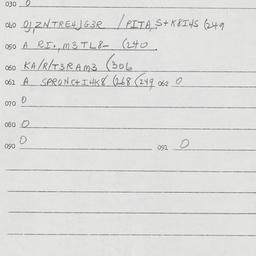 030 0
040 OJ,ZNTRE4JG3R /PITA,S+K8I4S (249
050 A RI.,M3TL8- (240
060 KA/R/T3RAM3 (306
061 A SPRONC+I4K8 (268 (249 062 0
070 0
080 0
090 0 091 0